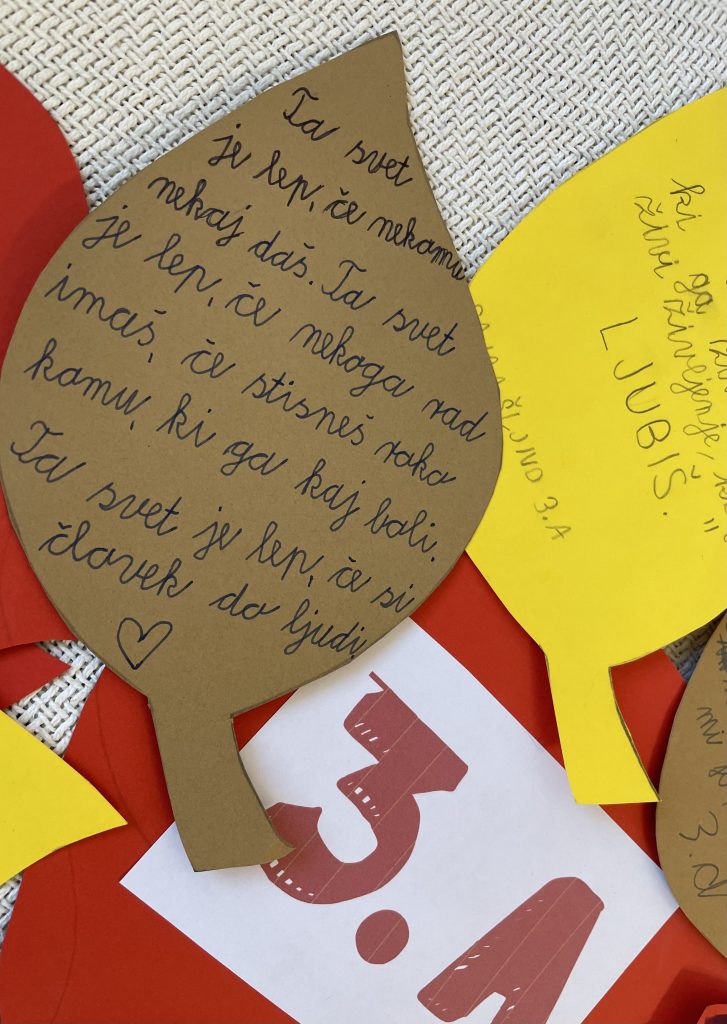 Ta svet
je lep, če nekomu
nekaj daš. Ta svet
je lep, če nekoga rad
imaš, če stisneš roko
komu, ki ga kaj boli.
Ta svet je lep, če si
človek do ljudi.
ki
živi ga
življenje,
LJUBIŠ.
3. A
mi je
3. d
3. A